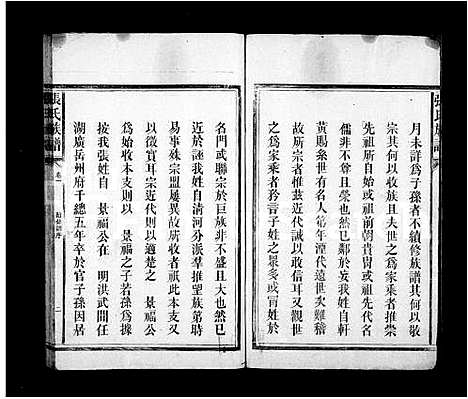 月未詳爲子孫者不續修族譜其何以敬
宗其何以收族且夫世之爲家乘者推崇
先祖所自或祖前朝貴冑或祖歷代名
儒非不尊且榮也然已鄰於妄我姓自軒
黃賜系世有名人第年湮代遠世次難稽
作譜者惟茲近代誠以收信耳又觀世
之爲家乘者矜言子姓之眾多或聯宗於
名門或聯宗於巨族非不盛且大也然已
近於誣我姓自淸河分派羣推望族第時
易事殊宗盟屢異故所收者祇此本支以
以徵實耳宗近代則以適楚之 景福公
爲始收本支則以 景福之子若孫爲據
按我張姓自 景福公在 明洪武間任
湖廣岳州府千總五年卒於官子孫因居
張氏族譜
卷一